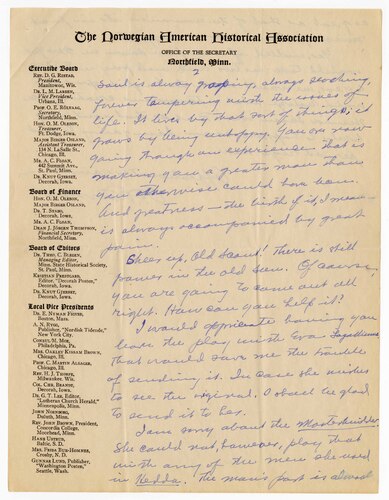 The Norwegian American Historical Association
OFFICE OF THE SECRETARY
Northfield, Minn.
Executive Board
Rev. D. G. Ristad,
President,
Manitowoc, Wis.
Dr. L. M. Larsen,
Vice President,
Urbana, Ill.
Prof. O. E. Rölvaag,
Secretary,
Northfield, Minn.
Hon. O. M. Oleson,
Treasurer,
Ft. Dodge, Iowa.
Major Birger Osland,
Assistant Treasurer,
134 N. LaSalle St.,
Chicago, Ill.
Mr. A. C. Floan,
462 Summit Ave.,
St. Paul, Minn.
Dr. Knut Gjerset,
Decorah, Iowa.
Board of Finance
Hon. O. M. Oleson,
Major Birger Osland,
Dr. T. Stabo,
Decorah, Iowa.
Mr. A. C. Floan,
Dean J. Jörgen Thompson,
Financial Secretary,
Northfield, Minn.
Board of Editors
Dr. Theo. C. Blegen,
Managing Editor,
Minn. State Historical Society,
St. Paul, Minn.
Kristian Prestgard,
Editor, "Decorah Posten,"
Decorah, Iowa.
Dr. Knut Gjerset,
Decorah, Iowa.
Local Vice Presidents
Dr. E. Nyman Figved,
Boston, Mass.
A. N. Rygg,
Publisher, "Nordisk Tidende,"
New York City
Conrad M. Moe,
Philadelphia, Pa.
Mrs. Oakley Kissam Brown,
Chicago, Ill.
Prof. C. Martin Alsager,
Chicago, Ill.
Rev. H. J. Thorpe,
Milwaukee, Wis.
Col. Chr. Brandt,
Decorah, Iowa.
Dr. G. T. Lee, Editor,
"Lutheran Church Herald,"
Minneapolis, Minn.
John Nordberg,
Duluth, Minn.
Rev. John Brown, President,
Concordia College,
Moorhead, Minn.
Hans Ustrud,
Baltic, S. D.
Mrs. Freda Bue-Homnes,
Crosby, N. D.
Gunnar Lund, Publisher,
"Washington Posten,"
Seattle, Wash.
2
soul is always groping, always searching,
forever tampering with the issues of
life. It lives by that sort of things; it
grows by being unhappy. You are now
going through an experience that is
making you a greater man than
you otherwise could have been.
And greatness — the birth of it, I mean —
is always accompanied by great
pain.
Cheer up, Old Scout! There is still
power in the old sun. Of course,
you are going to come out all
right. How can you help it?
I would appreciate having you
leave the play with Eva
that would save me the trouble
of sending it. In case she wishes
to see the original, I shall be glad
to send it to her.
I am sorry about the Masterbuilder.
She could not, however, play that
with any of the men she used
in Hedda. The man's part is almost